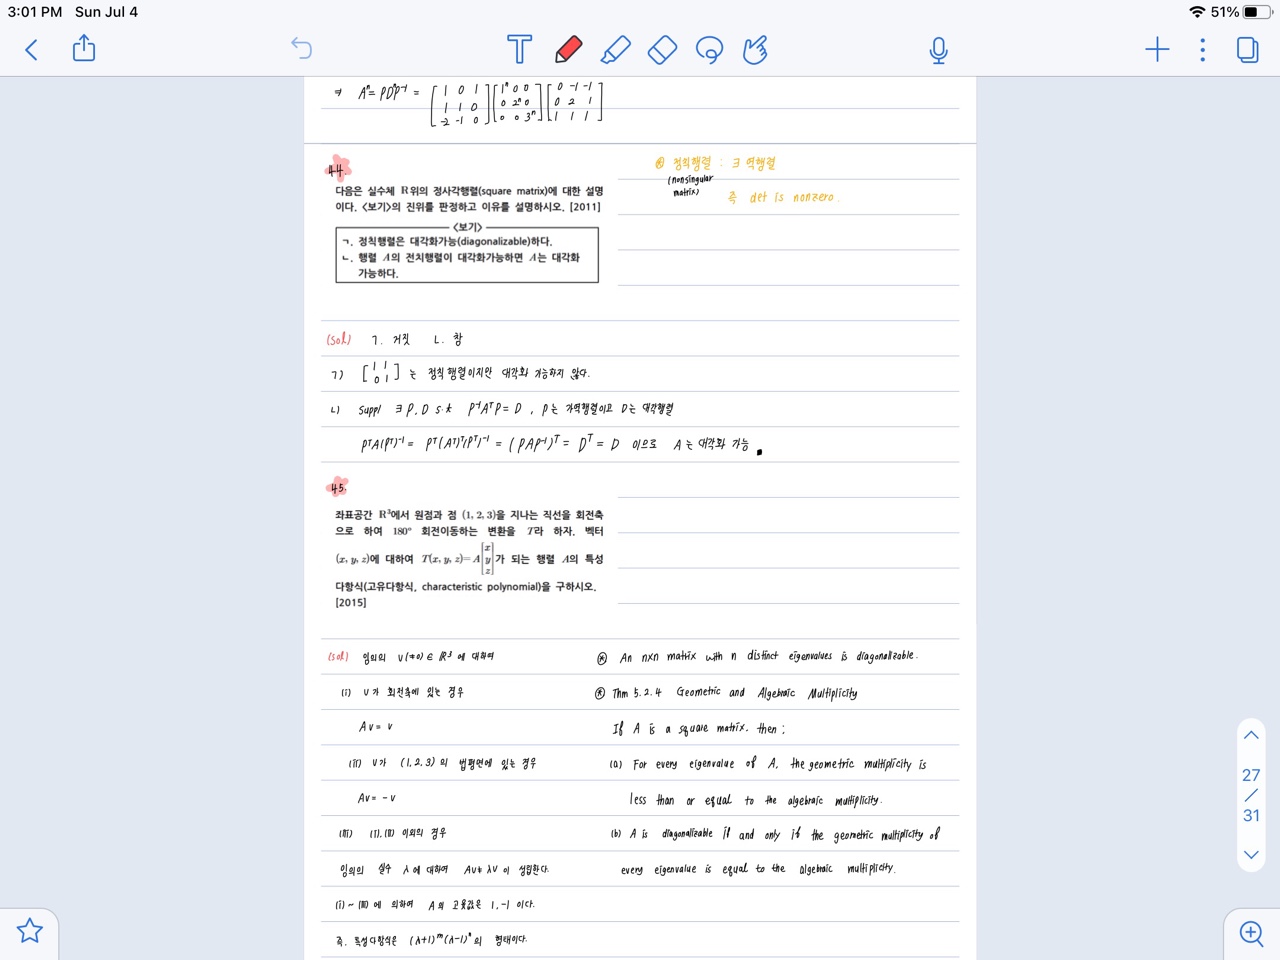 3:01 PM Sun Jul 4
51%
⇒ Aⁿ = PDⁿP⁻¹ = [1 0 1; 1 1 0; -2 -1 0] [1ⁿ 0 0; 0 2ⁿ 0; 0 0 3ⁿ] [0 -1 -1; 0 2 1; 1 1 1]
44.
⊛ 정칙행렬 : ∃ 역행렬
(nonsingular
matrix)
즉 det is nonzero.
다음은 실수체 R위의 정사각행렬(square matrix)에 대한 설명
이다. <보기>의 진위를 판정하고 이유를 설명하시오. [2011]
<보기>
ㄱ. 정칙행렬은 대각화가능(diagonalizable)하다.
ㄴ. 행렬 A의 전치행렬이 대각화가능하면 A는 대각화
가능하다.
(sol) ㄱ. 거짓 ㄴ. 참
ㄱ) [1 1; 0 1] 는 정칙행렬이지만 대각화 가능하지 않다.
ㄴ) Suppl ∃ P, D s.t P⁻¹AᵀP = D , P는 가역행렬이고 D는 대각행렬
PᵀA(Pᵀ)⁻¹ = Pᵀ(Aᵀ)ᵀ(Pᵀ)⁻¹ = (PAP⁻¹)ᵀ = Dᵀ = D 이므로 A는 대각화 가능.
45.
좌표공간 R³에서 원점과 점 (1, 2, 3)을 지나는 직선을 회전축
으로 하여 180° 회전이동하는 변환을 T라 하자. 벡터
(x, y, z)에 대하여 T(x, y, z)=A[x; y; z]가 되는 행렬 A의 특성
다항식(고유다항식, characteristic polynomial)을 구하시오.
[2015]
(sol) 임의의 v(≠0) ∈ R³ 에 대하여
(i) v가 회전축에 있는 경우
Av = v
(ii) v가 (1,2,3)의 법평면에 있는 경우
Av = -v
(iii) (i), (ii) 이외의 경우
임의의 실수 λ에 대하여 Av≠λv 이 성립한다.
(i) ~ (iii)에 의하여 A의 고윳값은 1, -1 이다.
즉, 특성다항식은 (λ+1)ᵐ(λ-1)ⁿ의 형태이다.
⊛ An n×n matrix with n distinct eigenvalues is diagonalizable.
⊛ Thm 5.2.4 Geometric and Algebraic Multiplicity
If A is a square matrix. then ;
(a) For every eigenvalue of A, the geometric multiplicity is
less than or equal to the algebraic multiplicity.
(b) A is diagonalizable if and only if the geometric multiplicity of
every eigenvalue is equal to the algebraic multiplicity.
27
/
31